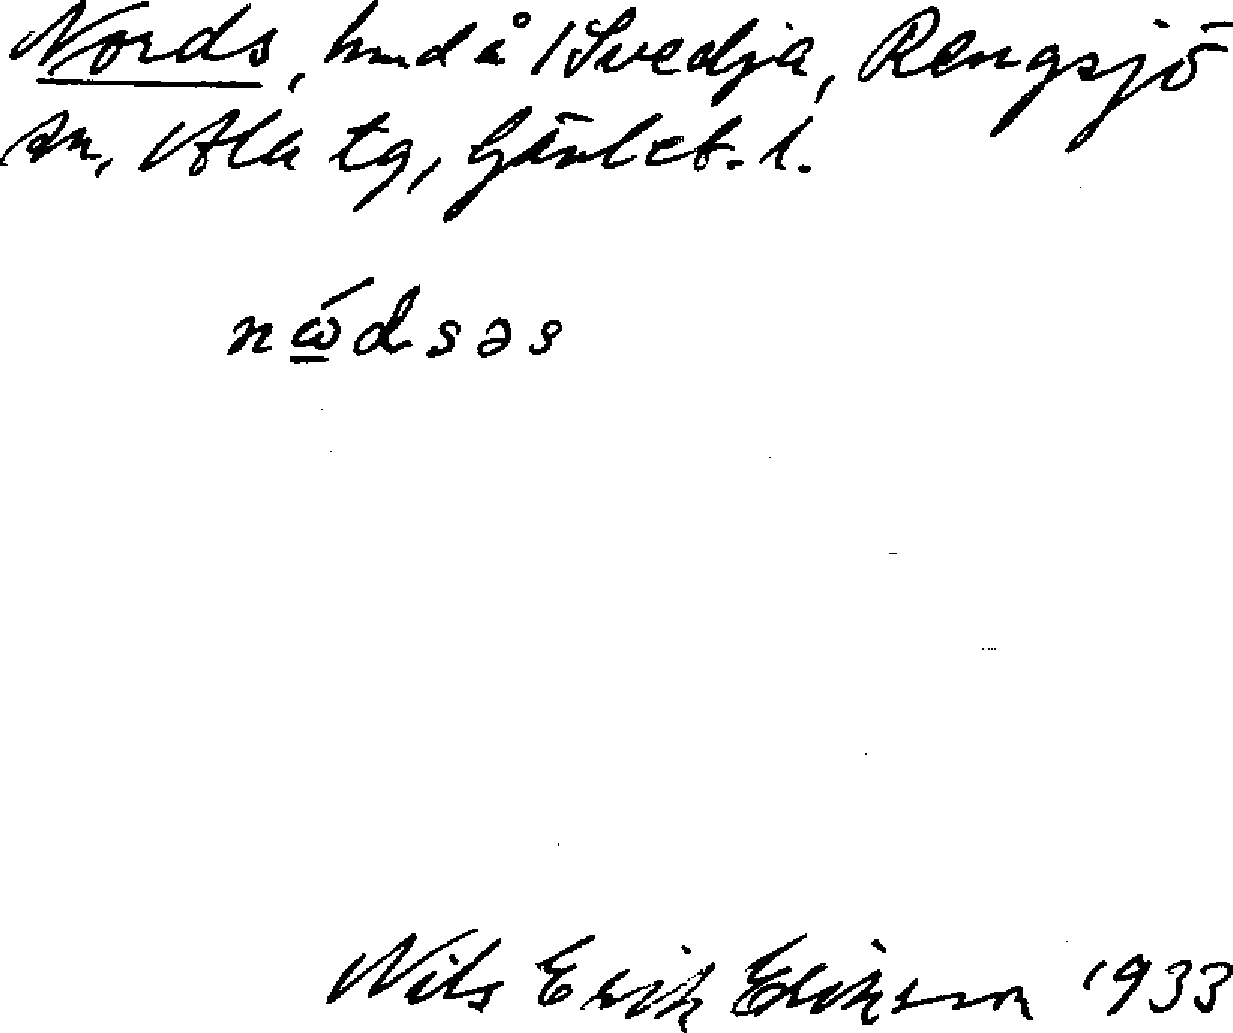 Nords, hmd å Svedja, Rengsjö
sn, Ala tg, Gävleb. l.
nώdsəs
Nils Erik Erikson 1933